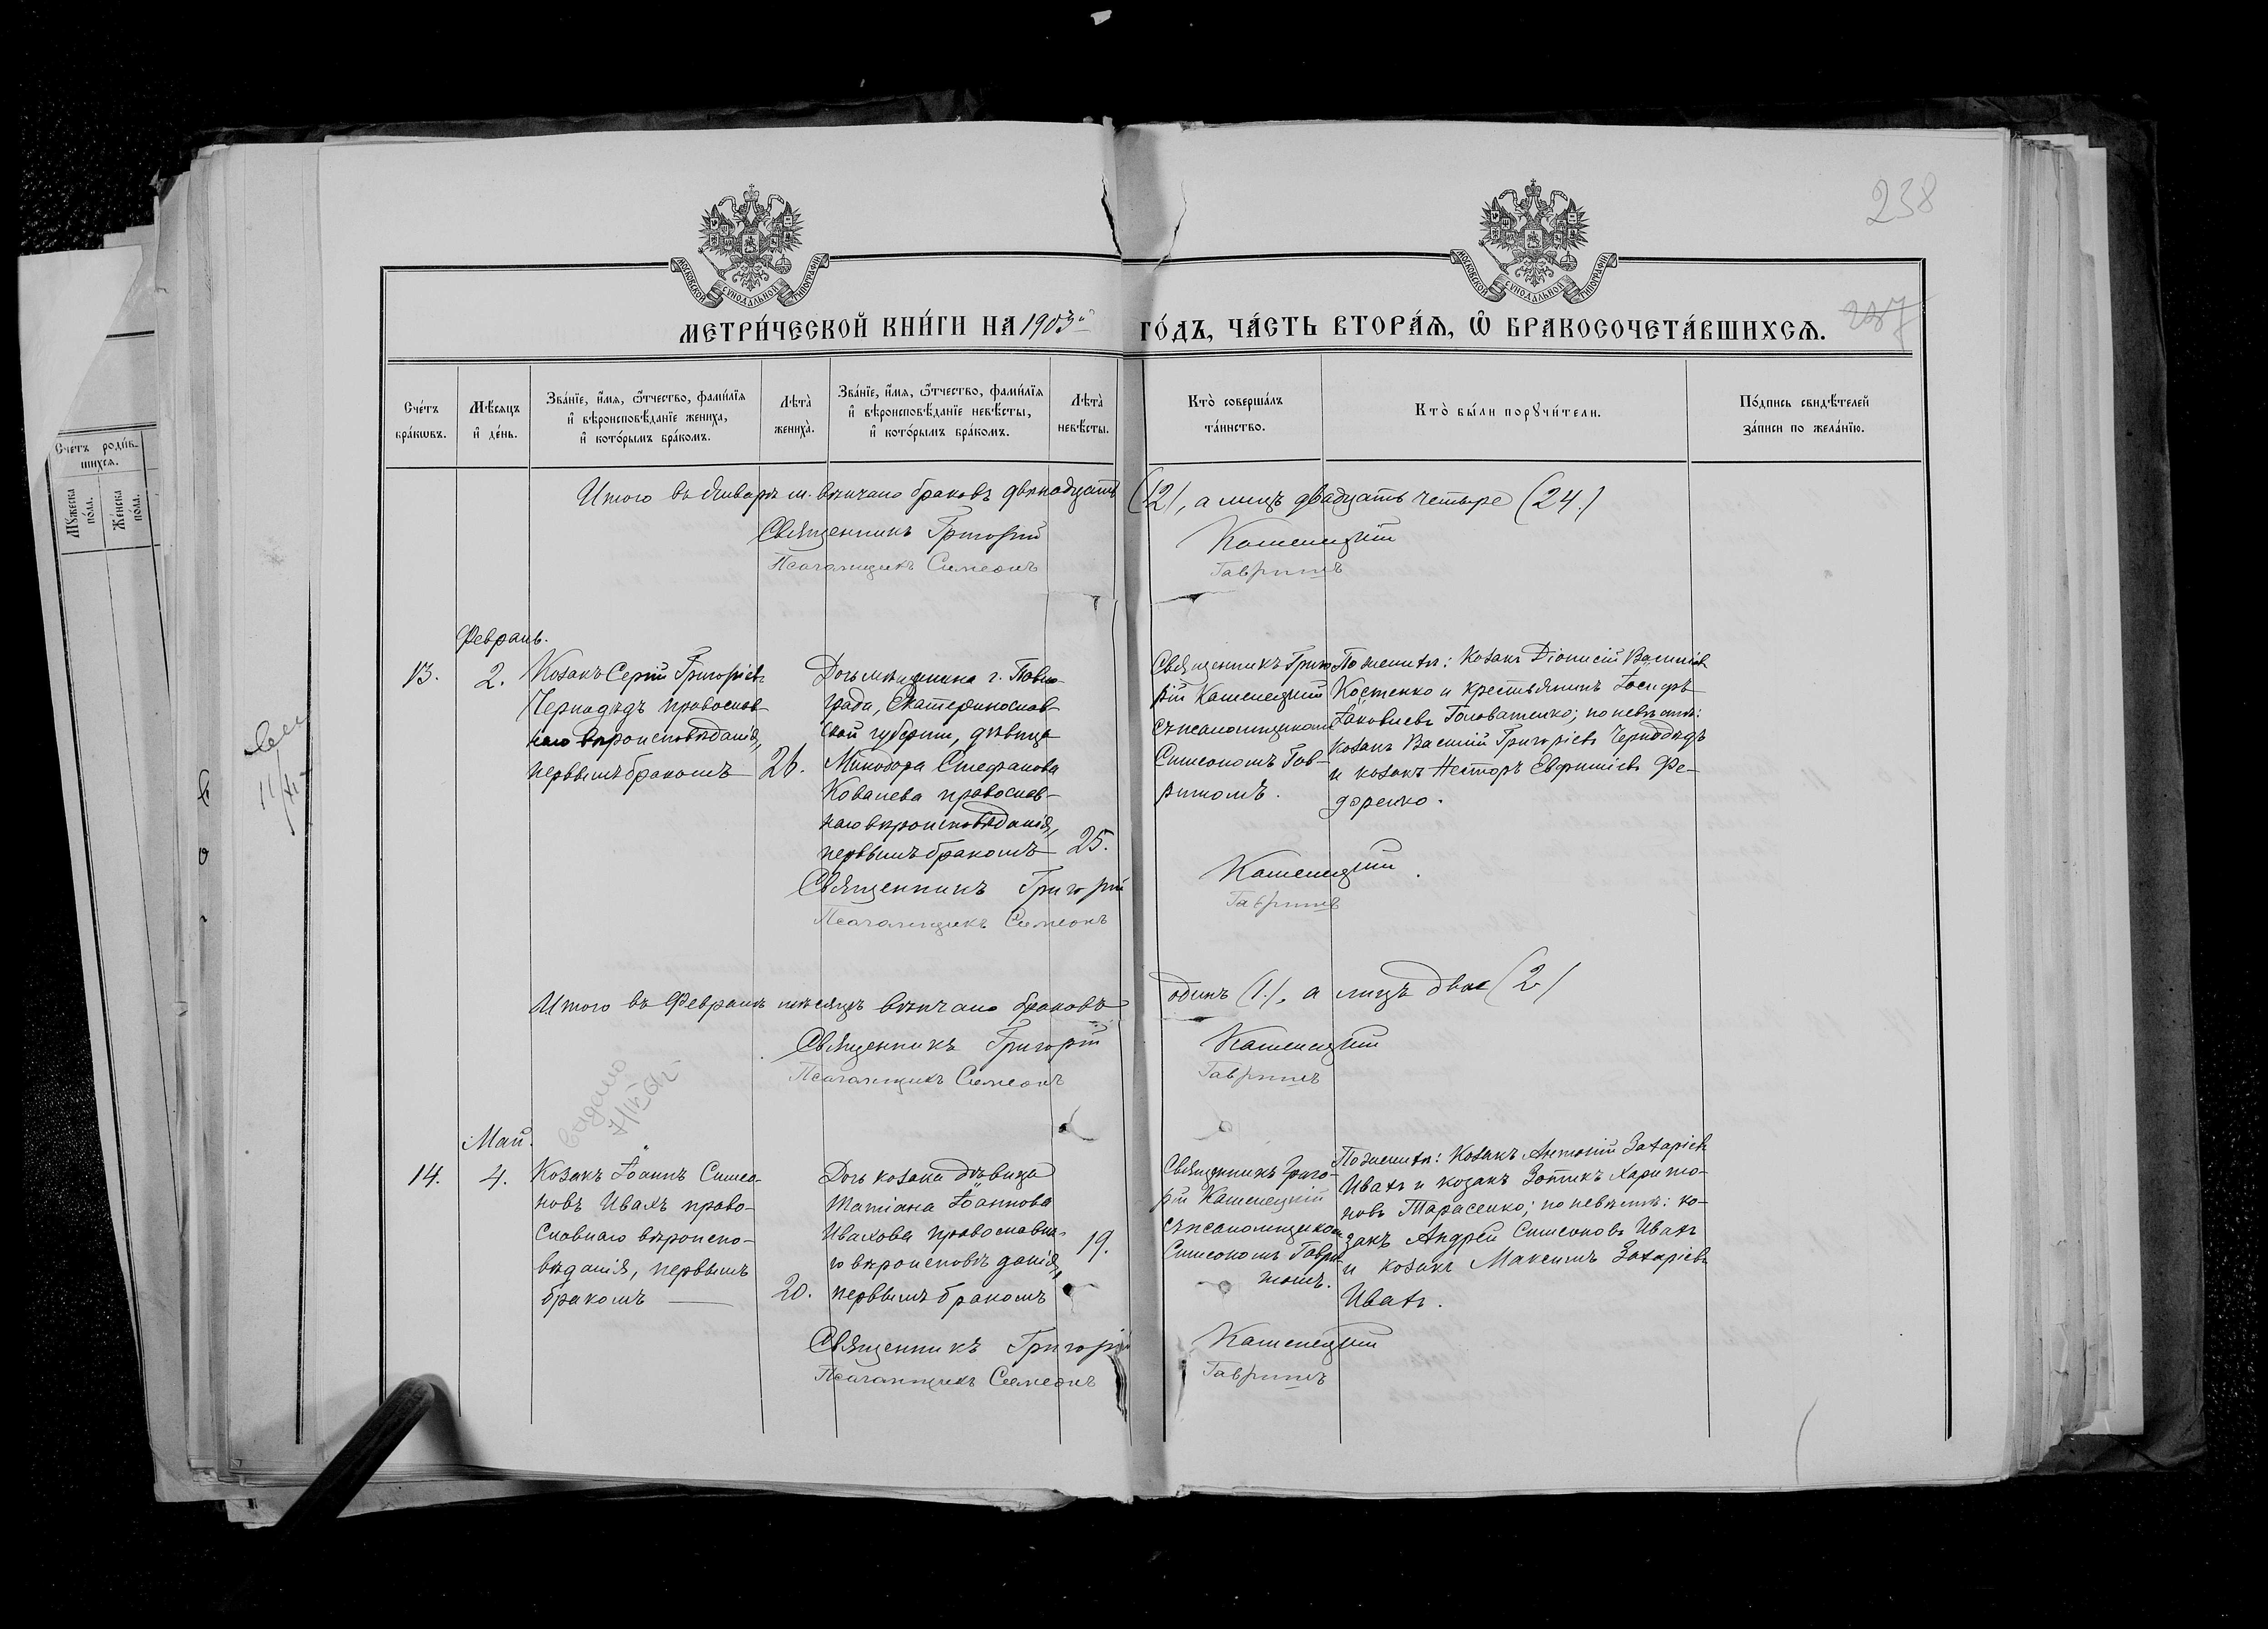 238
237
МОСКОВСКОЙ СѴНОДАЛЬНОЙ ТИПОГРАФІИ
МОСКОВСКОЙ СѴНОДАЛЬНОЙ ТИПОГРАФІИ
МЕТРИ́ЧЕСКОЙ КНИ́ГИ НА 1903й ГО́ДЪ, ЧА́СТЬ ВТОРА́Ѧ, Ѽ БРАКОСОЧЕТА́ВШИХСѦ.
Сче́тъ
бра́кѡвъ.
Мѣ́сѧцъ
и҆ де́нь.
Зва́нїе, и҆́мѧ, ѻ҆́тчество, фами́лїѧ
и҆ вѣроисповѣ́данїе жениха̀,
и҆ кото́рымъ бра́комъ.
Лѣта̀
жениха̀.
Зва́нїе, и҆́мѧ, ѻ҆́тчество, фами́лїѧ
и҆ вѣроисповѣ́данїе невѣ́сты,
и҆ кото́рымъ бра́комъ.
Лѣта̀
невѣ́сты.
Кто̀ соверша́лъ
та́инство.
Кто̀ бы́ли порꙋчи́тели.
По́дпись свидѣ́телей
за́писи по жела́нїю.
Счетъ родив-
шихсѧ.
Мꙋжеска
пола.
Женска
пола.
Итого въ Январѣ м. вѣнчано браковъ двѣнадцать (12), а лицъ двадцать четыре (24.)
Священникъ Григорій Каменецкій
Псаломщикъ Симеонъ Гавришъ
Февраль.
13.
2.
Козакъ Сергій Григоріевъ
Чернодѣдъ православ-
наго вѣроисповѣданія,
первымъ бракомъ
26.
Дочь мѣщанина г. Павло-
града, Екатеринослав-
ской губерніи, дѣвица
Минодора Стефанова
Ковалева православ-
наго вѣроисповѣданія,
первымъ бракомъ
25.
Священникъ Григо-
рій Каменецкій
съ псаломщикомъ
Симеономъ Гав-
ришомъ.
По женихѣ: козакъ Діонисій Василіевъ
Костенко и крестьянинъ Іосифъ
Іаковлевъ Головатенко; по невѣстѣ:
козакъ Василій Григоріевъ Чернодѣдъ
и козакъ Несторъ Евфиміевъ Фе-
доренко.
Священникъ Григорій Каменецкій.
Псаломщикъ Симеонъ Гавришъ
Итого въ Февралѣ мѣсяцѣ вѣнчано браковъ одинъ (1.), а лицъ двое (2)
Священникъ Григорій Каменецкій
Псаломщикъ Симеонъ Гавришъ
Выдано
Май.
14.
4.
Козакъ Іоаннъ Симео-
новъ Ивахъ право-
славнаго вѣроиспо-
вѣданія, первымъ
бракомъ
20.
Дочь козака дѣвица
Татіана Іоаннова
Ивахова православна-
го вѣроисповѣданія,
первымъ бракомъ
19.
Священникъ Григо-
рій Каменецкій
съ псаломщикомъ
Симеономъ Гаври-
шомъ.
По женихѣ: козакъ Антоній Захаріевъ
Ивахъ и козакъ Зотикъ Харито-
новъ Тарасенко; по невѣстѣ: ко-
закъ Андрей Симеоновъ Ивахъ
и козакъ Максимъ Захаріевъ
Ивахъ.
Священникъ Григорій Каменецкій
Псаломщикъ Симеонъ Гавришъ